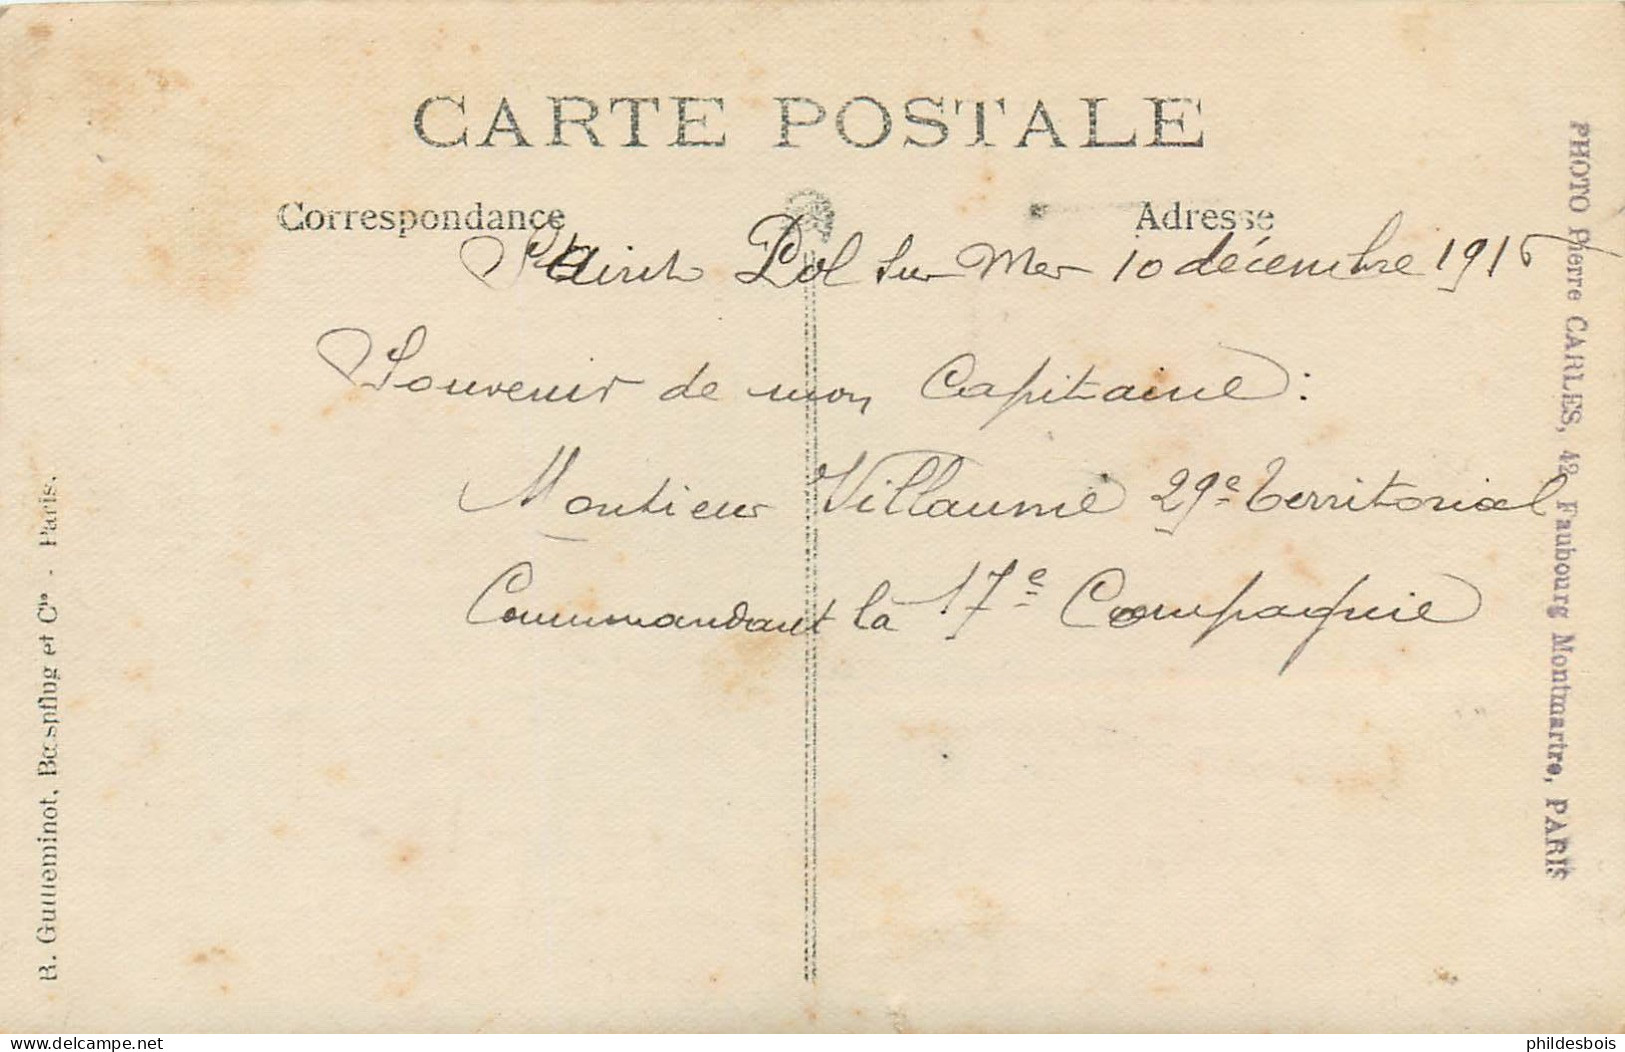 CARTE POSTALE
Correspondance
Adresse
Saint Pol sur Mer 10 décembre 1916
Souvenir de mon Capitaine :
Monsieur Villaume 29e territorial
Commandant la 17e Compagnie
R. Guilleminot, Bœspflug et Cie - Paris.
PHOTO Pierre CARLES, 42, Faubourg Montmartre, PARIS
delcampe.net
phildesbois